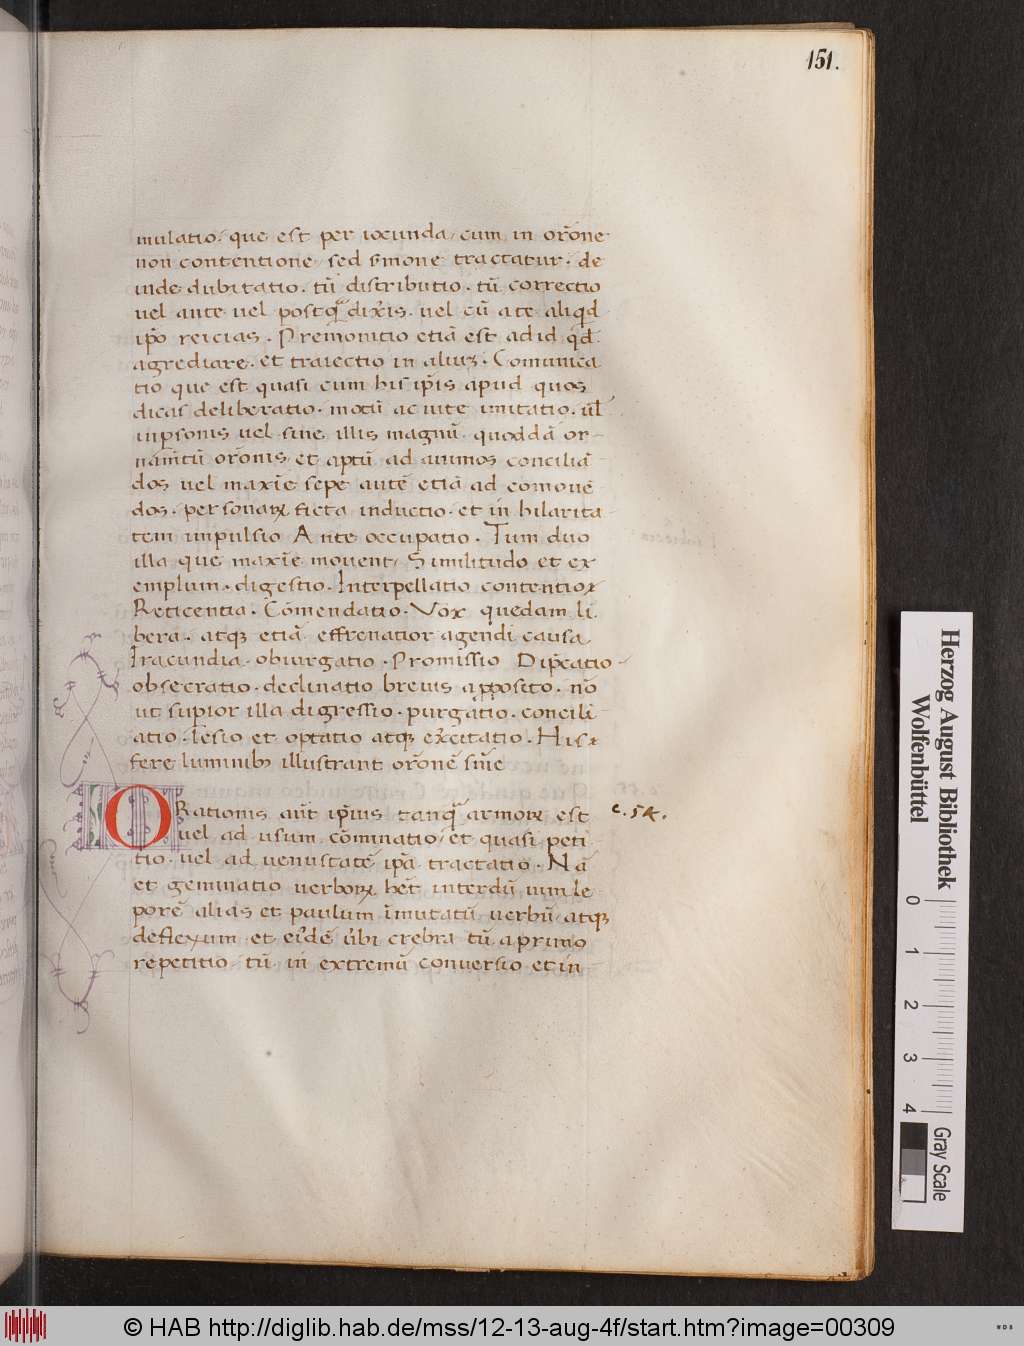 151.
mulatio. que est per iocunda. cum in orõne
non contentione. sed smone tractatur. de
inde dubitatio. tũ distributio. tũ correctio
uel ante uel postq̃ dixis. uel cũ a te aliqd
ipo reicias. Premonitio etiã est ad id qđ
agrediare. et traiectio in aliuȝ. Comunica
tio que est quasi cum his ip̃is apud quos
dicas deliberatio. motũ ac uite imitatio. uł
in psonis uel sine illis magnũ. quoddã or-
namtũ orõnis et aptũ ad animos conciliã
dos uel maxie sepe aute etiã ad comoue
dos. personaꝝ ficta inductio. et in hilarita-
tem impulsio Ante occupatio. Tum duo
illa que maxie mouent. Similitudo et ex
emplum. digestio. Interpellatio contentio.
Reticentia. Comendatio. Vox quedam li.
bera. atqȝ etiã effrenatior agendi causa
Iracundia. obiurgatio. Promissio Dip̃catio-
obsecratio. declinatio breuis apposito. nõ
ut supior illa digressio. purgatio. concili
atio. lesio et optatio atqȝ excitatio. His
fere luminibȝ illustrant oronẽ snie
ORationis aut ip̃ius tanq̃ armoꝝ est
uel ad usum cõminatio. et quasi peti
tio. uel ad uenustatẽ ip̃a tractatio. Nã
et geminatio uerboꝝ het interdũ uim le
porẽ alias et paulum imutatũ uerbũ atqȝ
deflexum et eiđẽ ubi crebra tũ a primo
repetitio. tũ in extremũ conuersio et in
c. 54.
Herzog August Bibliothek
Wolfenbüttel
0 1 2 3 4
Gray Scale
© HAB http://diglib.hab.de/mss/12-13-aug-4f/start.htm?image=00309